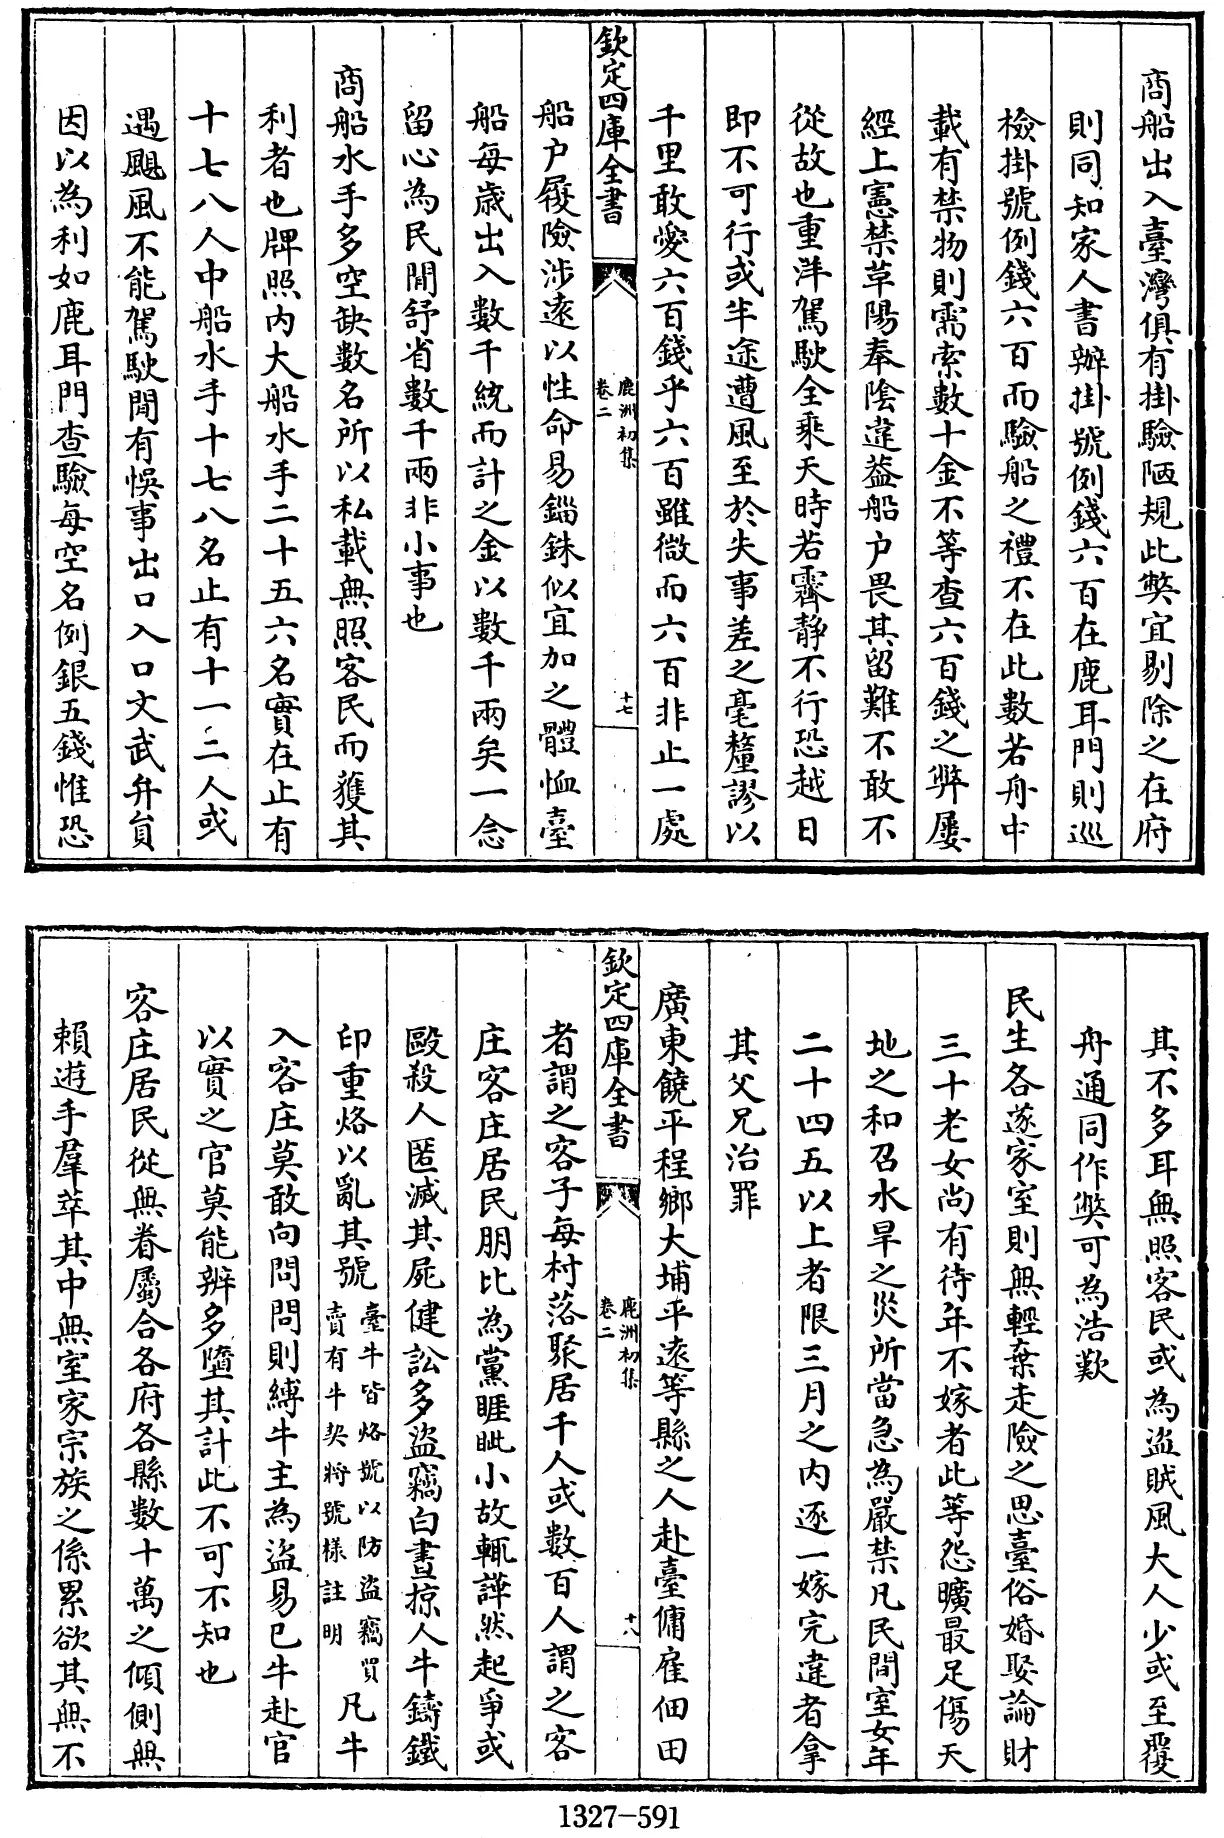 商船出入臺灣俱有掛驗陋規此弊宜剔除之在府
則同知家人書辦掛號例錢六百在鹿耳門則巡
檢掛號例錢六百而驗船之禮不在此數若舟中
載有禁物則需索數十金不等查六百錢之弊屢
經上憲禁革陽奉陰違葢船户畏其留難不敢不
從故也重洋駕駛全乘天時若霽靜不行恐越日
即不可行或半途遭風至於失事差之毫釐謬以
千里敢愛六百錢乎六百雖微而六百非止一處
欽定四庫全書
鹿洲初集
卷二
十七
船户履險涉遠以性命易錙銖似宜加之體恤臺
船每歲出入數千統而計之金以數千兩矣一念
留心為民間舒省數千兩非小事也
商船水手多空缺數名所以私載無照客民而獲其
利者也牌照内大船水手二十五六名實在止有
十七八人中船水手十七八名止有十一二人或
遇颶風不能駕駛閒有悞事出口入口文武弁員
因以為利如鹿耳門查驗每空名例銀五錢惟恐
其不多耳無照客民或為盜賊風大人少或至覆
舟通同作弊可為浩歎
民生各遂家室則無輕棄走險之思臺俗婚娶論財
三十老女尚有待年不嫁者此等怨曠最足傷天
地之和召水旱之災所當急為嚴禁凡民間室女年
二十四五以上者限三月之内逐一嫁完違者拿
其父兄治罪
廣東饒平程鄉大埔平遠等縣之人赴臺傭雇佃田
欽定四庫全書
鹿洲初集
卷二
十八
者謂之客子每村落聚居千人或數百人謂之客
庄客庄居民朋比為黨睚眦小故輒譁然起爭或
毆殺人匿滅其屍健訟多盜竊白晝掠人牛鑄鐵
印重烙以亂其號臺牛皆烙號以防盜竊買賣有牛契將號樣註明凡牛
入客庄莫敢向問問則縛牛主為盜易已牛赴官
以實之官莫能辨多墮其計此不可不知也
客庄居民從無眷屬合各府各縣數十萬之傾側無
賴遊手羣萃其中無室家宗族之係累欲其無不
1327-591